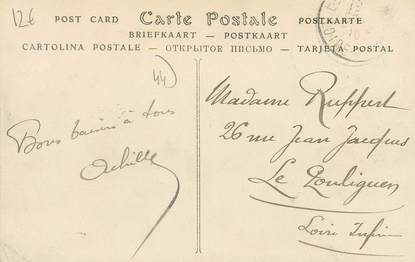 12€
POST CARD Carte Postale POSTKARTE
BRIEFKAART — POSTKAART
CARTOLINA POSTALE — ОТКРЫТОЕ ПИСЬМО — TARJETA POSTAL
44
Bons baisers à tous
Achille
Madame Ruppert
26 rue Jean Jacques
Le Pouliguen
Loire Infre